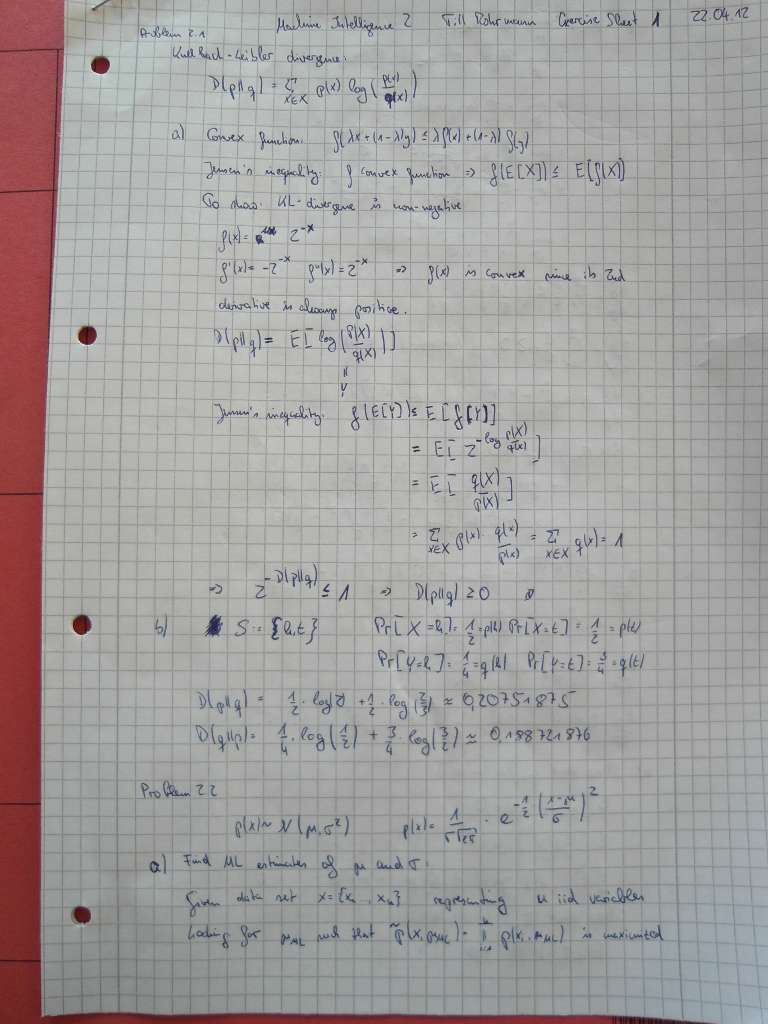 Machine Intelligence 2 Till Rohrmann Exercise Sheet 1 22.04.12
Problem 2.1
Kullback-Leibler divergence:
D(p||q) = Σ_{x∈X} p(x) log(p(x)/q(x))
a) Convex function: f(λx + (1-λ)y) ≤ λf(x) + (1-λ) f(y)
Jensen's inequality: f convex function => f(E[X]) ≤ E[f(X)]
To show: KL-divergence is non-negative
f(x) = 2^{-x}
f'(x) = -2^{-x} f''(x) = 2^{-x} => f(x) is convex since its 2nd
derivative is always positive.
D(p||q) = E[log(p(X)/q(X))]
=
Y
Jensen's inequality: f(E[Y]) ≤ E[f(Y)]
= E[2^{-log p(X)/q(X)}]
= E[q(X)/p(X)]
= Σ_{x∈X} p(x) · q(x)/p(x) = Σ_{x∈X} q(x) = 1
=> 2^{-D(p||q)} ≤ 1 => D(p||q) ≥ 0
b) S := {h,t} Pr[X=h] = 1/2 = p(h) Pr[X=t] = 1/2 = p(t)
Pr[Y=h] = 1/4 = q(h) Pr[Y=t] = 3/4 = q(t)
D(p||q) = 1/2 · log(2) + 1/2 · log(2/3) ≈ 0,20751875
D(q||p) = 1/4 · log(1/2) + 3/4 · log(3/2) ≈ 0,188721876
Problem 2.2
p(x) ~ N(μ,σ²) p(x) = 1/(σ√2π) · e^{-1/2 ((x-μ)/σ)²}
a) Find ML estimates of μ and σ.
Given data set x = {x₁ , xₙ} representing n iid variables
Looking for μ_ML such that p(x, μ_ML) = ∏ p(x_i, μ_ML) is maximized